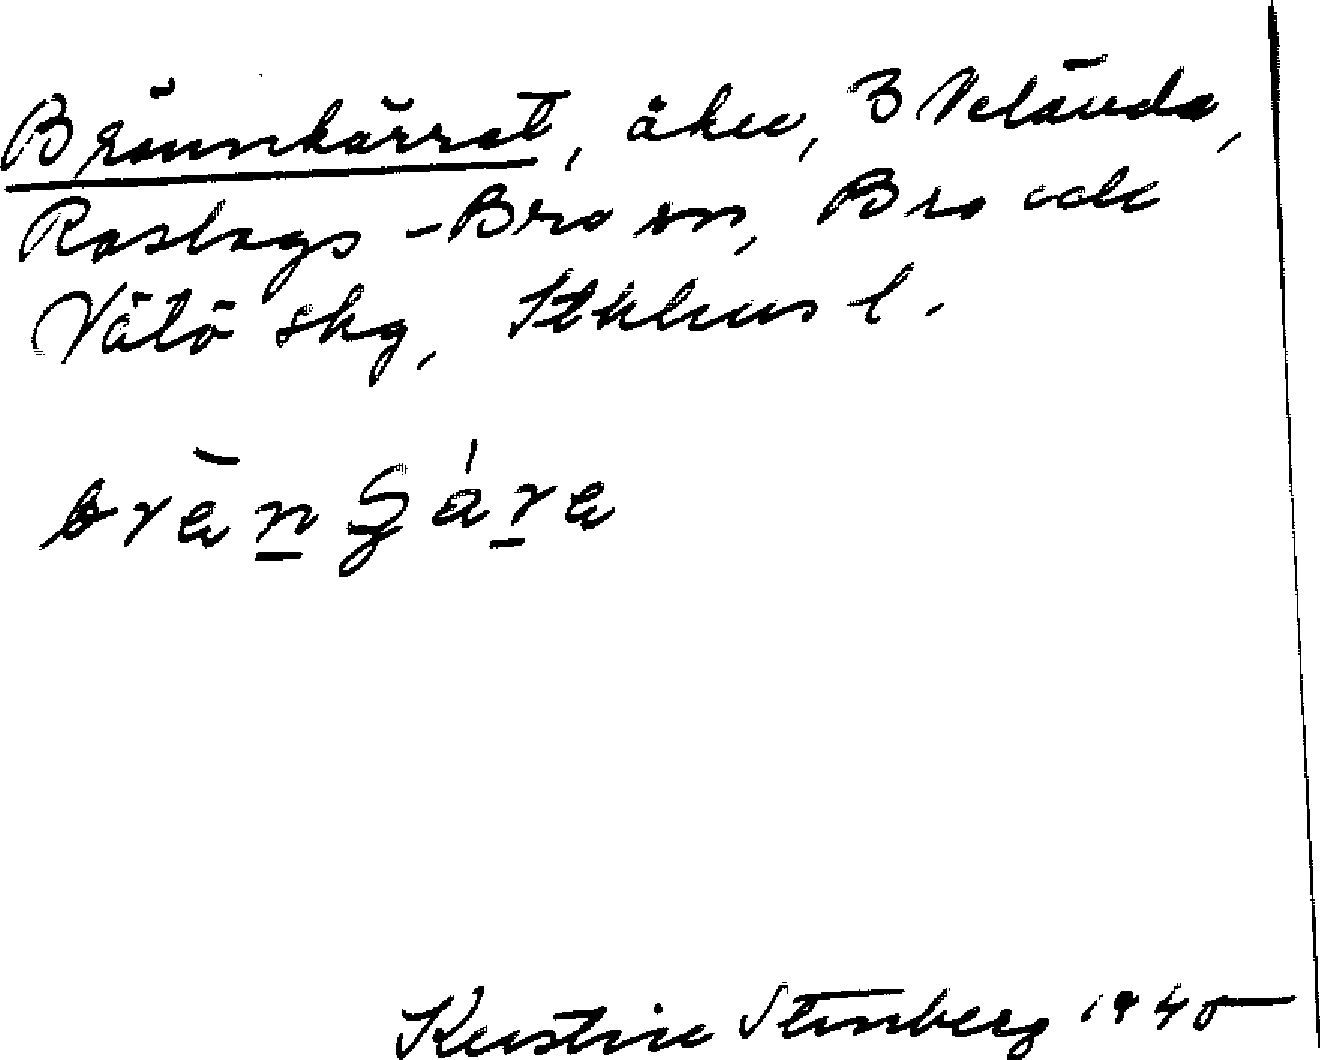 Brännkärret, åker, 3 Velända,
Roslags-Bro sn, Bro och
Vätö skg, Sthlms l.
brän kára
Kerstin Stenberg 1945